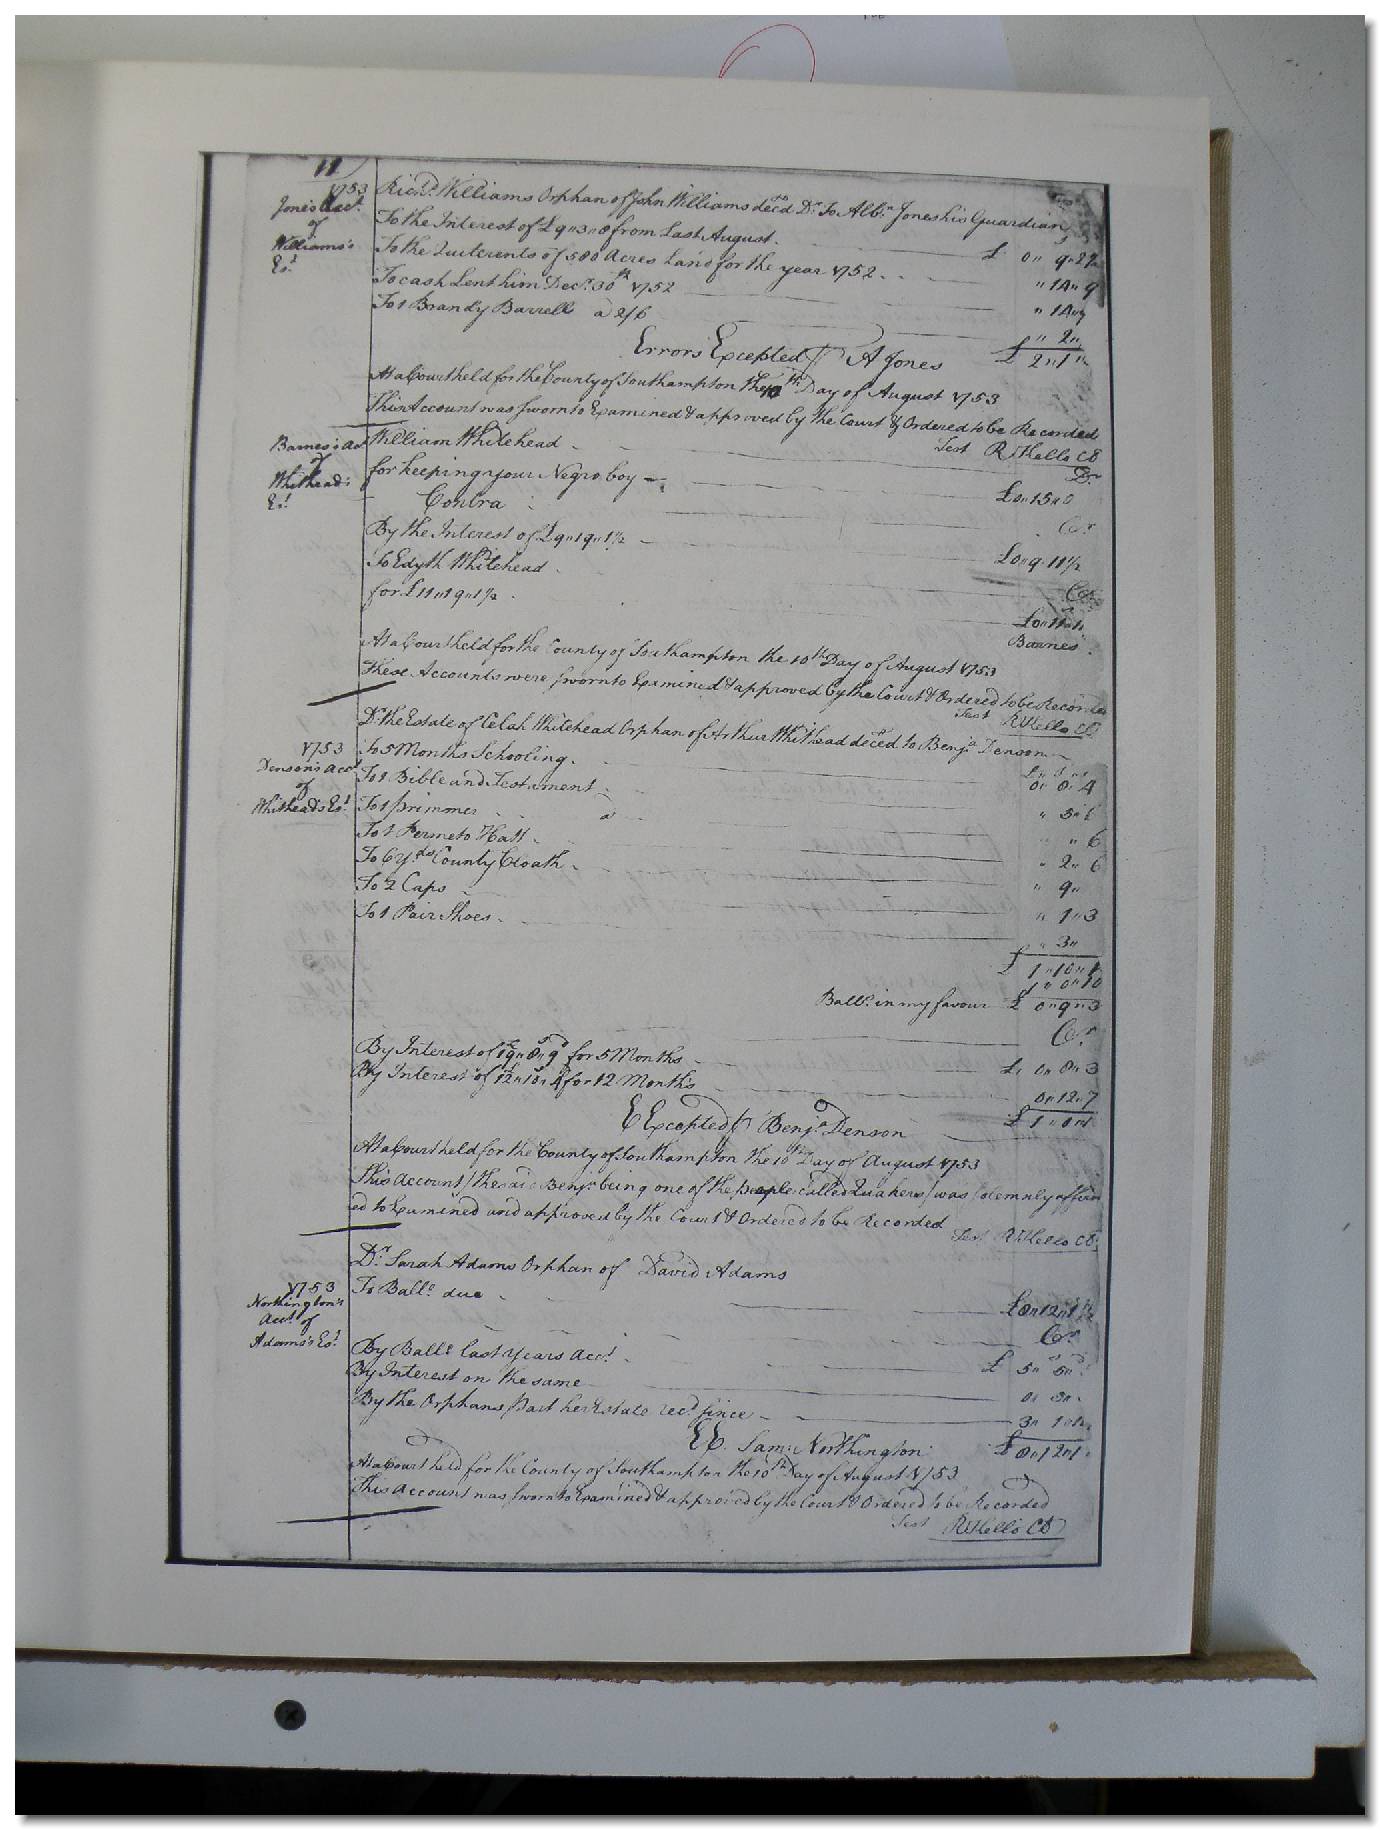 11
1753
Jones's Acct.
of
Williams's
Est.
Richd. Williams Orphan of John Williams decd. Dr. To Albn. Jones his Guardian
To the Interest of £9"3"8 from Last August. £ 0" 9"2½
To the Quiterents of 580 Acres Land for the year 1752 " 14" 9
To cash Lent him Decr. 30th 1752 " 14"
To 1 Brandy Barrell a 2/6 " 2"
Errors Excepted p A Jones £ 2"1"
At a Court held for the County of Southampton the 10th Day of August 1753
This Account was sworn to Examined & approved by the Court & Ordered to be Recorded
Test R Kello CC
Barnes's Act
of
Whithead's
Est.
William Whitehead Dr.
for keeping your Negro boy £0"15"0
Contra Cr.
By the Interest of £9"19"1½ £0"9"11½
To Edyth Whitehead Cr.
for £11"19"1½ £0"11"
Barnes
At a Court held for the County of Southampton the 10th Day of August 1753
These Accounts were sworn to Examined & approved by the Court & Ordered to be Recorded
Test R Kello CC
1753
Denson's Acct.
of
Whithead's Est.
Dr. the Estate of Celah Whitehead Orphan of Arthur Whithead decd. to Benja. Denson
To 5 Months Schooling £ 0" 8" 4
To 1 Bible and Testament " 5" 6
To 1 primmer a " " 6
To 1 Permeto Hatt " 2" 6
To 6 yds County Cloath " 9"
To 2 Caps " 1" 3
To 1 Pair Shoes " 3"
£ 1"10"1
1" 0"10
Balle. in my favour £ 0"9"3
Cr.
By Interest of 19"8"9 for 5 Months £ 0" 8" 3
By Interest of 12"10"4 for 12 Months 0"12"7
E Excepted p Benja. Denson £ 1"0"
At a Court held for the County of Southampton the 10th Day of August 1753
This Account (the said Benja. being one of the people called Quakers) was solemnly affirm
ed to Examined and approved by the Court & Ordered to be Recorded
Test R Kello CC
1753
Northington's
Acct. of
Adams's Est.
Dr. Sarah Adams Orphan of David Adams
To Balle. due £8"12"1½
Cr.
By Balle. last years Acct. £ 5" 5"
By Interest on the same 0" 5"
By the Orphans part her Estate recd. since 3" 1"
EE. Saml. Northington £ 8"12"1
At a Court held for the County of Southampton the 10th Day of August 1753
This Account was sworn to Examined & approved by the Court & Ordered to be Recorded
Test R Kello CC